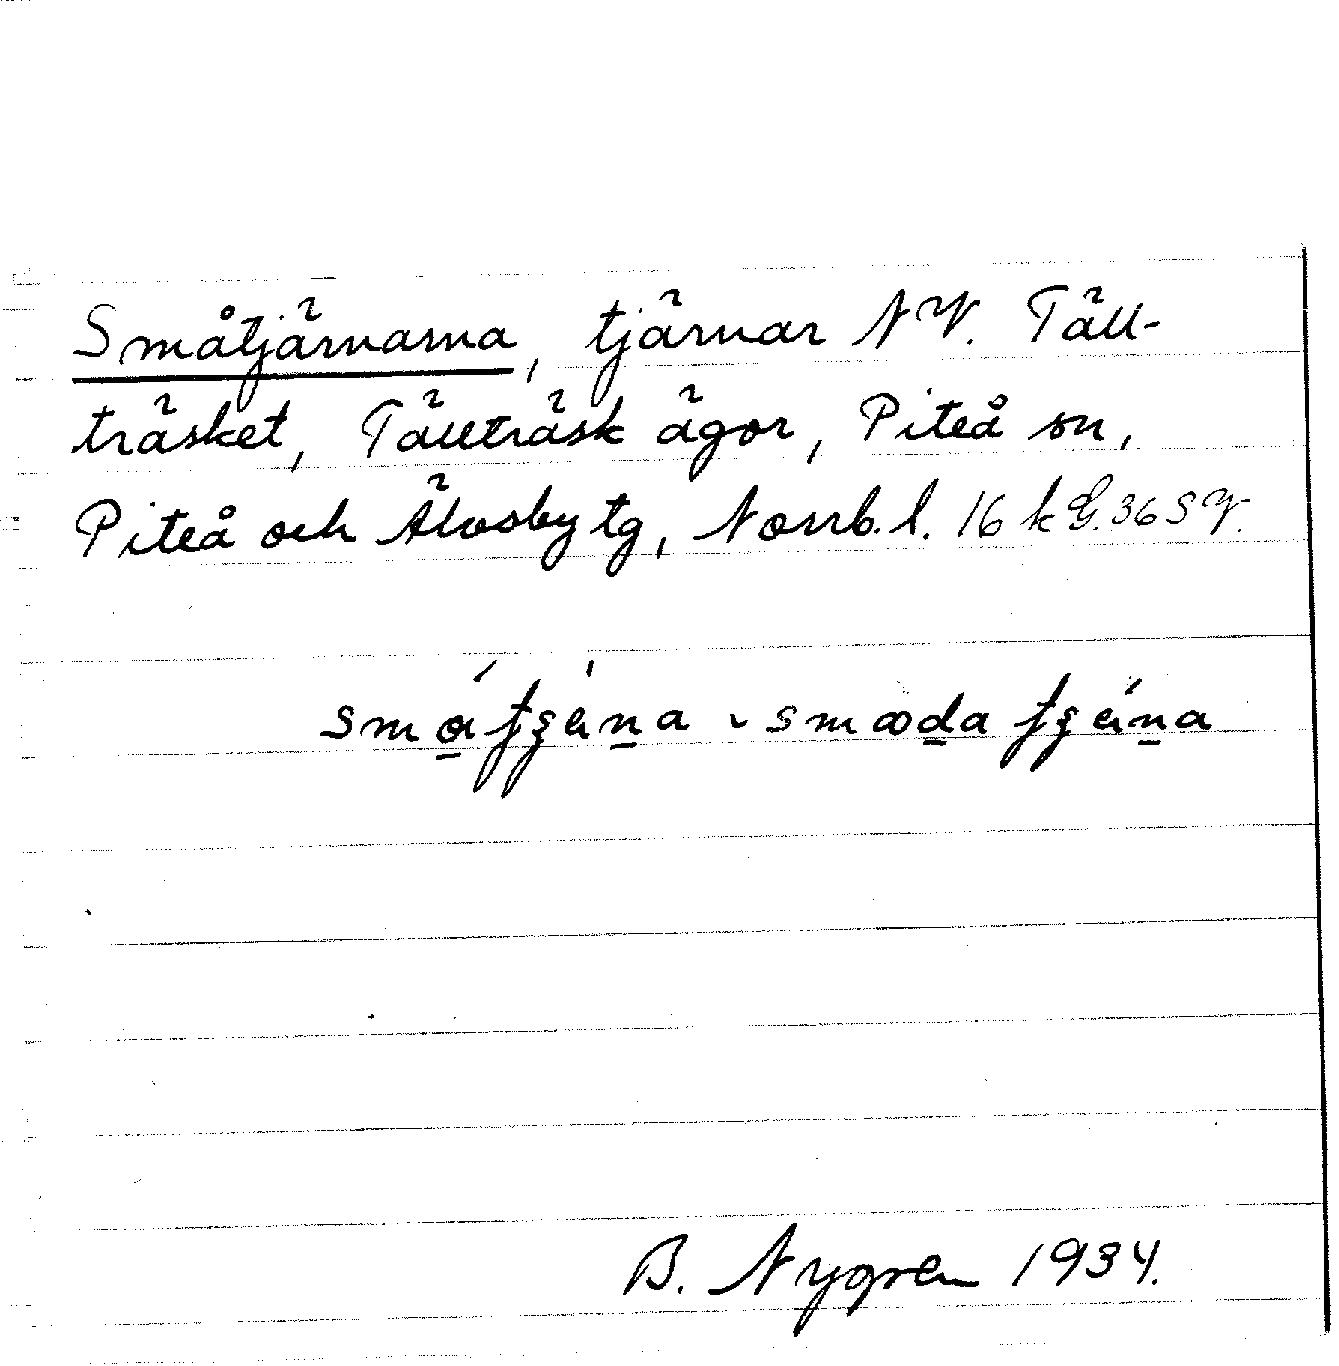 Småtjärnarna, tjärnar NV. Täll-
träsket, Tällträsk ägor, Piteå sn,
Piteå och Älvsby tg, Norrb. l. 16 k G. 36 SV.
B. Nygren 1934.